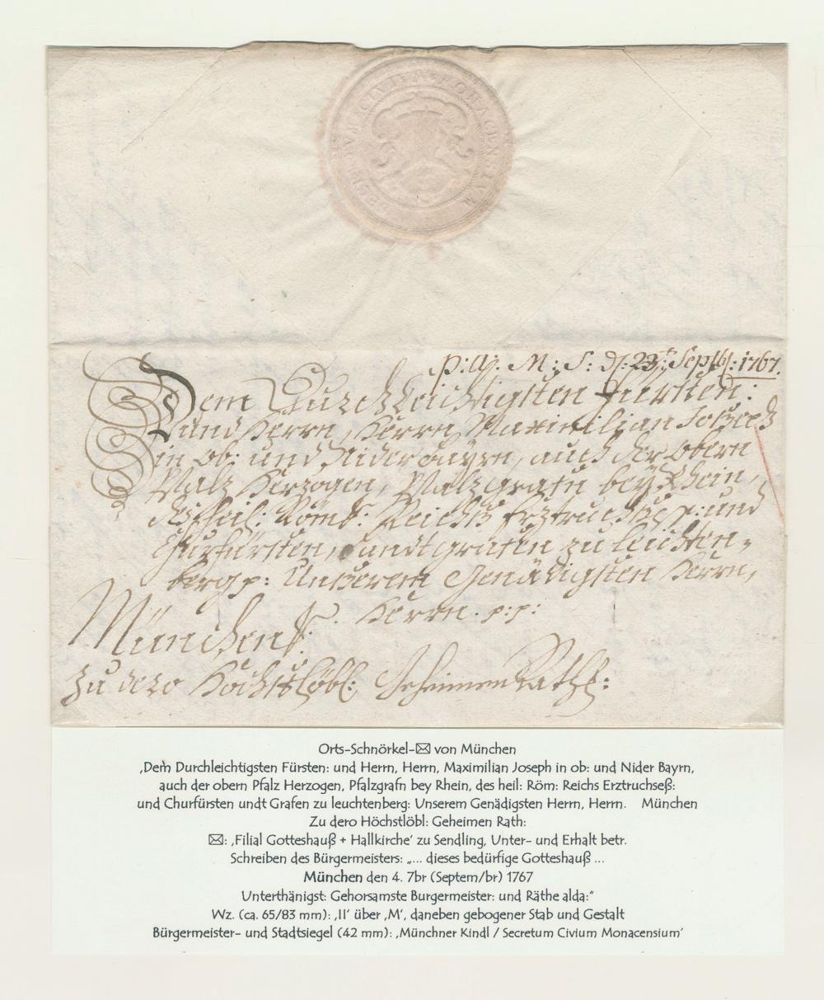 SECRETUM CIVIUM MONACENSIUM
d: 23: Septbr: 1767.
Dem Durchleichtigsten Fürsten:
und Herrn, Herrn, Maximilian Joseph
in ob: und Niderbayrn, auch der obern
Pfalz Herzogen, Pfalzgrafn bey Rhein,
des heil: Röm: Reichs Erztruchseß: und
Churfürsten, Landtgrafen zu Leichten-
berg p: Unserem Genädigsten Herrn,
Herrn. p: p:
München
Zu dero Höchstlöbl: Geheimen Rath:
Orts-Schnörkel-✉ von München
‚Dem Durchleichtigsten Fürsten: und Herrn, Herrn, Maximilian Joseph in ob: und Nider Bayrn,
auch der obern Pfalz Herzogen, Pfalzgrafn bey Rhein, des heil: Röm: Reichs Erztruchseß:
und Churfürsten undt Grafen zu leuchtenberg: Unserem Genädigsten Herrn, Herrn. München
Zu dero Höchstlöbl: Geheimen Rath:
✉: ‚Filial Gotteshauß + Hallkirche‘ zu Sendling, Unter- und Erhalt betr.
Schreiben des Bürgermeisters: „... dieses bedürfige Gotteshauß ...
München den 4. 7br (Septem/br) 1767
Unterthänigst: Gehorsamste Burgermeister: und Räthe alda:“
Wz. (ca. 65/83 mm): ‚II‘ über ‚M‘, daneben gebogener Stab und Gestalt
Bürgermeister- und Stadtsiegel (42 mm): ‚Münchner Kindl / Secretum Civium Monacensium‘